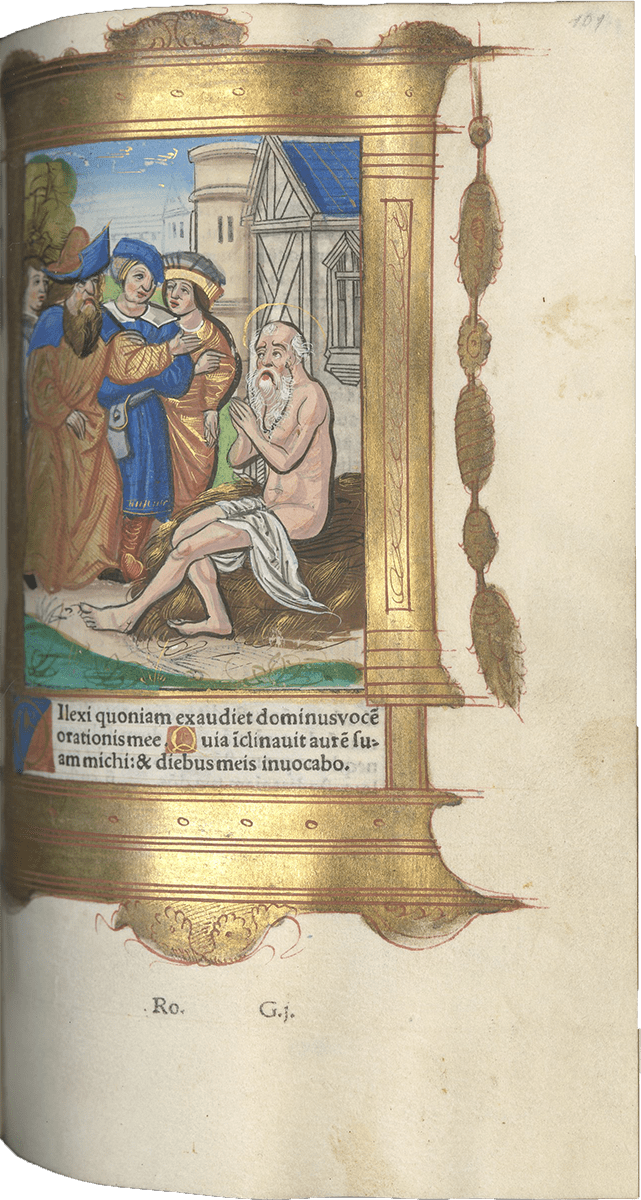 101
Ilexi quoniam exaudiet dominus vocē
orationis mee. Quia īclinauit aurē su-
am michi: & diebus meis inuocabo.
Ro. G.j.